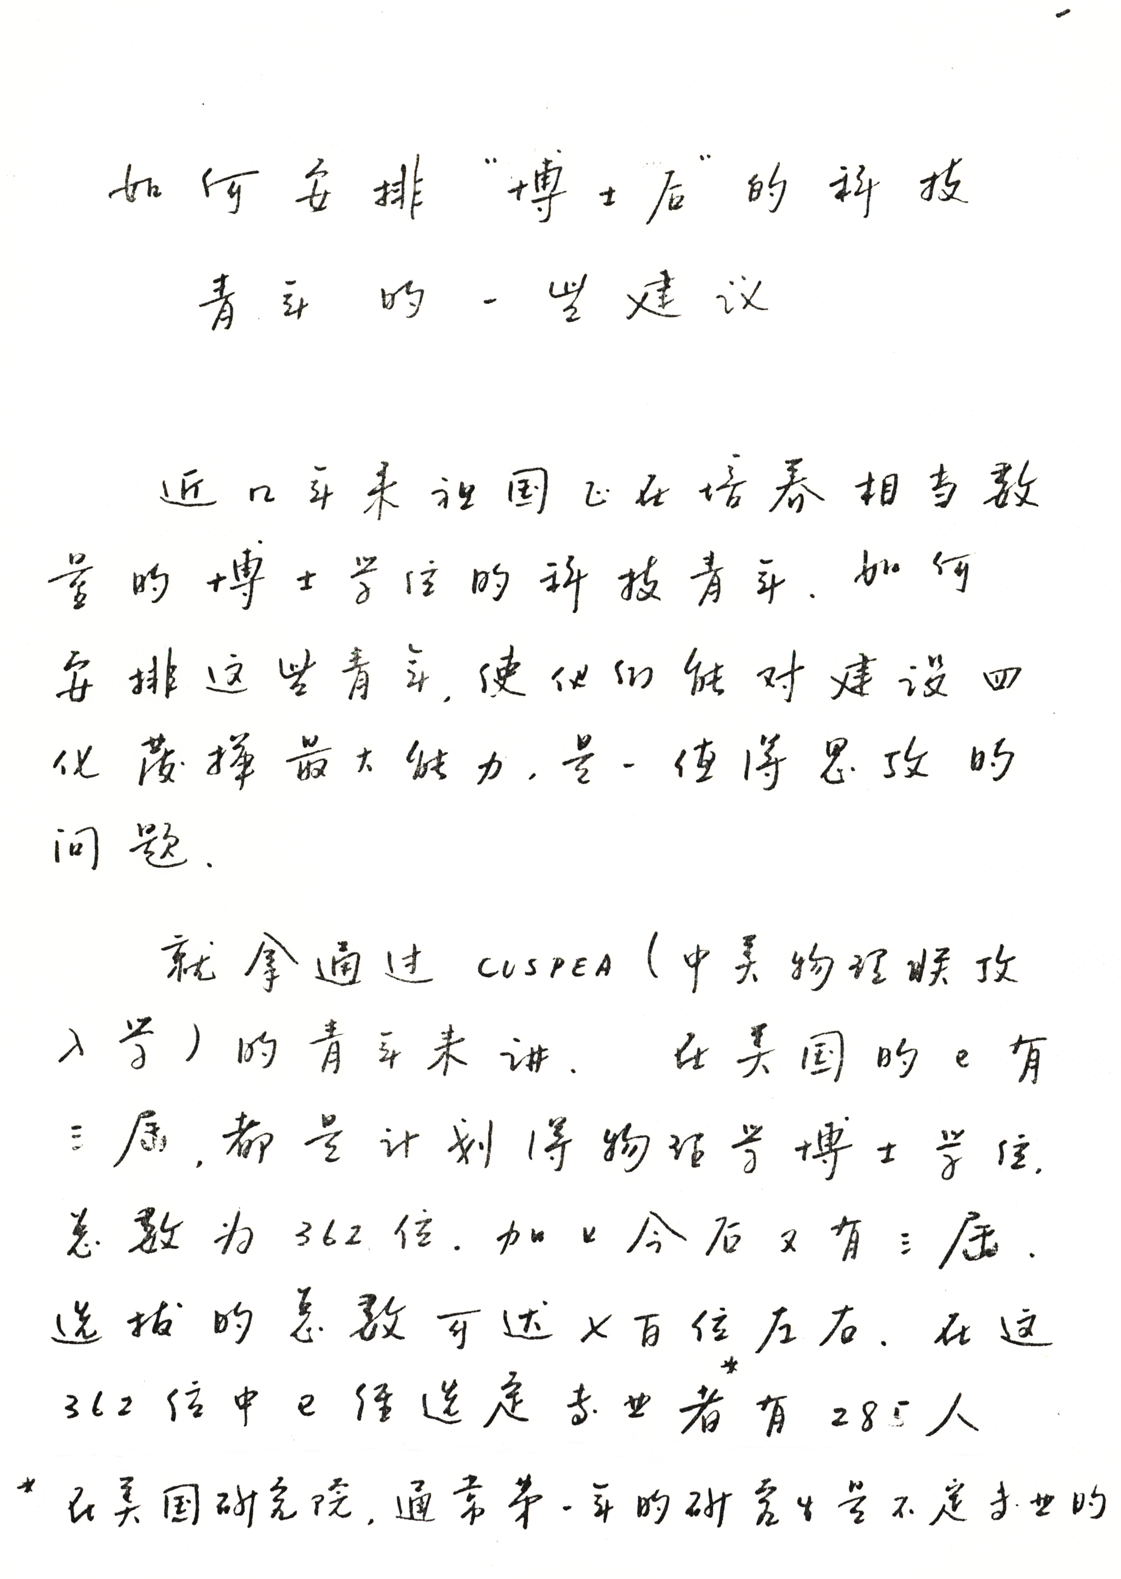 如何安排“博士后”的科技
青年的一些建议
近几年来祖国正在培养相当数
量的博士学位的科技青年．如何
安排这些青年，使他们能对建设四
化发挥最大能力，是一值得思考的
问题．
就拿通过CUSPEA（中美物理联考
入学）的青年来讲．在美国的已有
三届，都是计划得物理学博士学位，
总数为362位．加上今后又有三届．
选拔的总数可达七百位左右．在这
362位中已经选定专业者*有285人
*在美国研究院，通常第一年的研究生是不定专业的